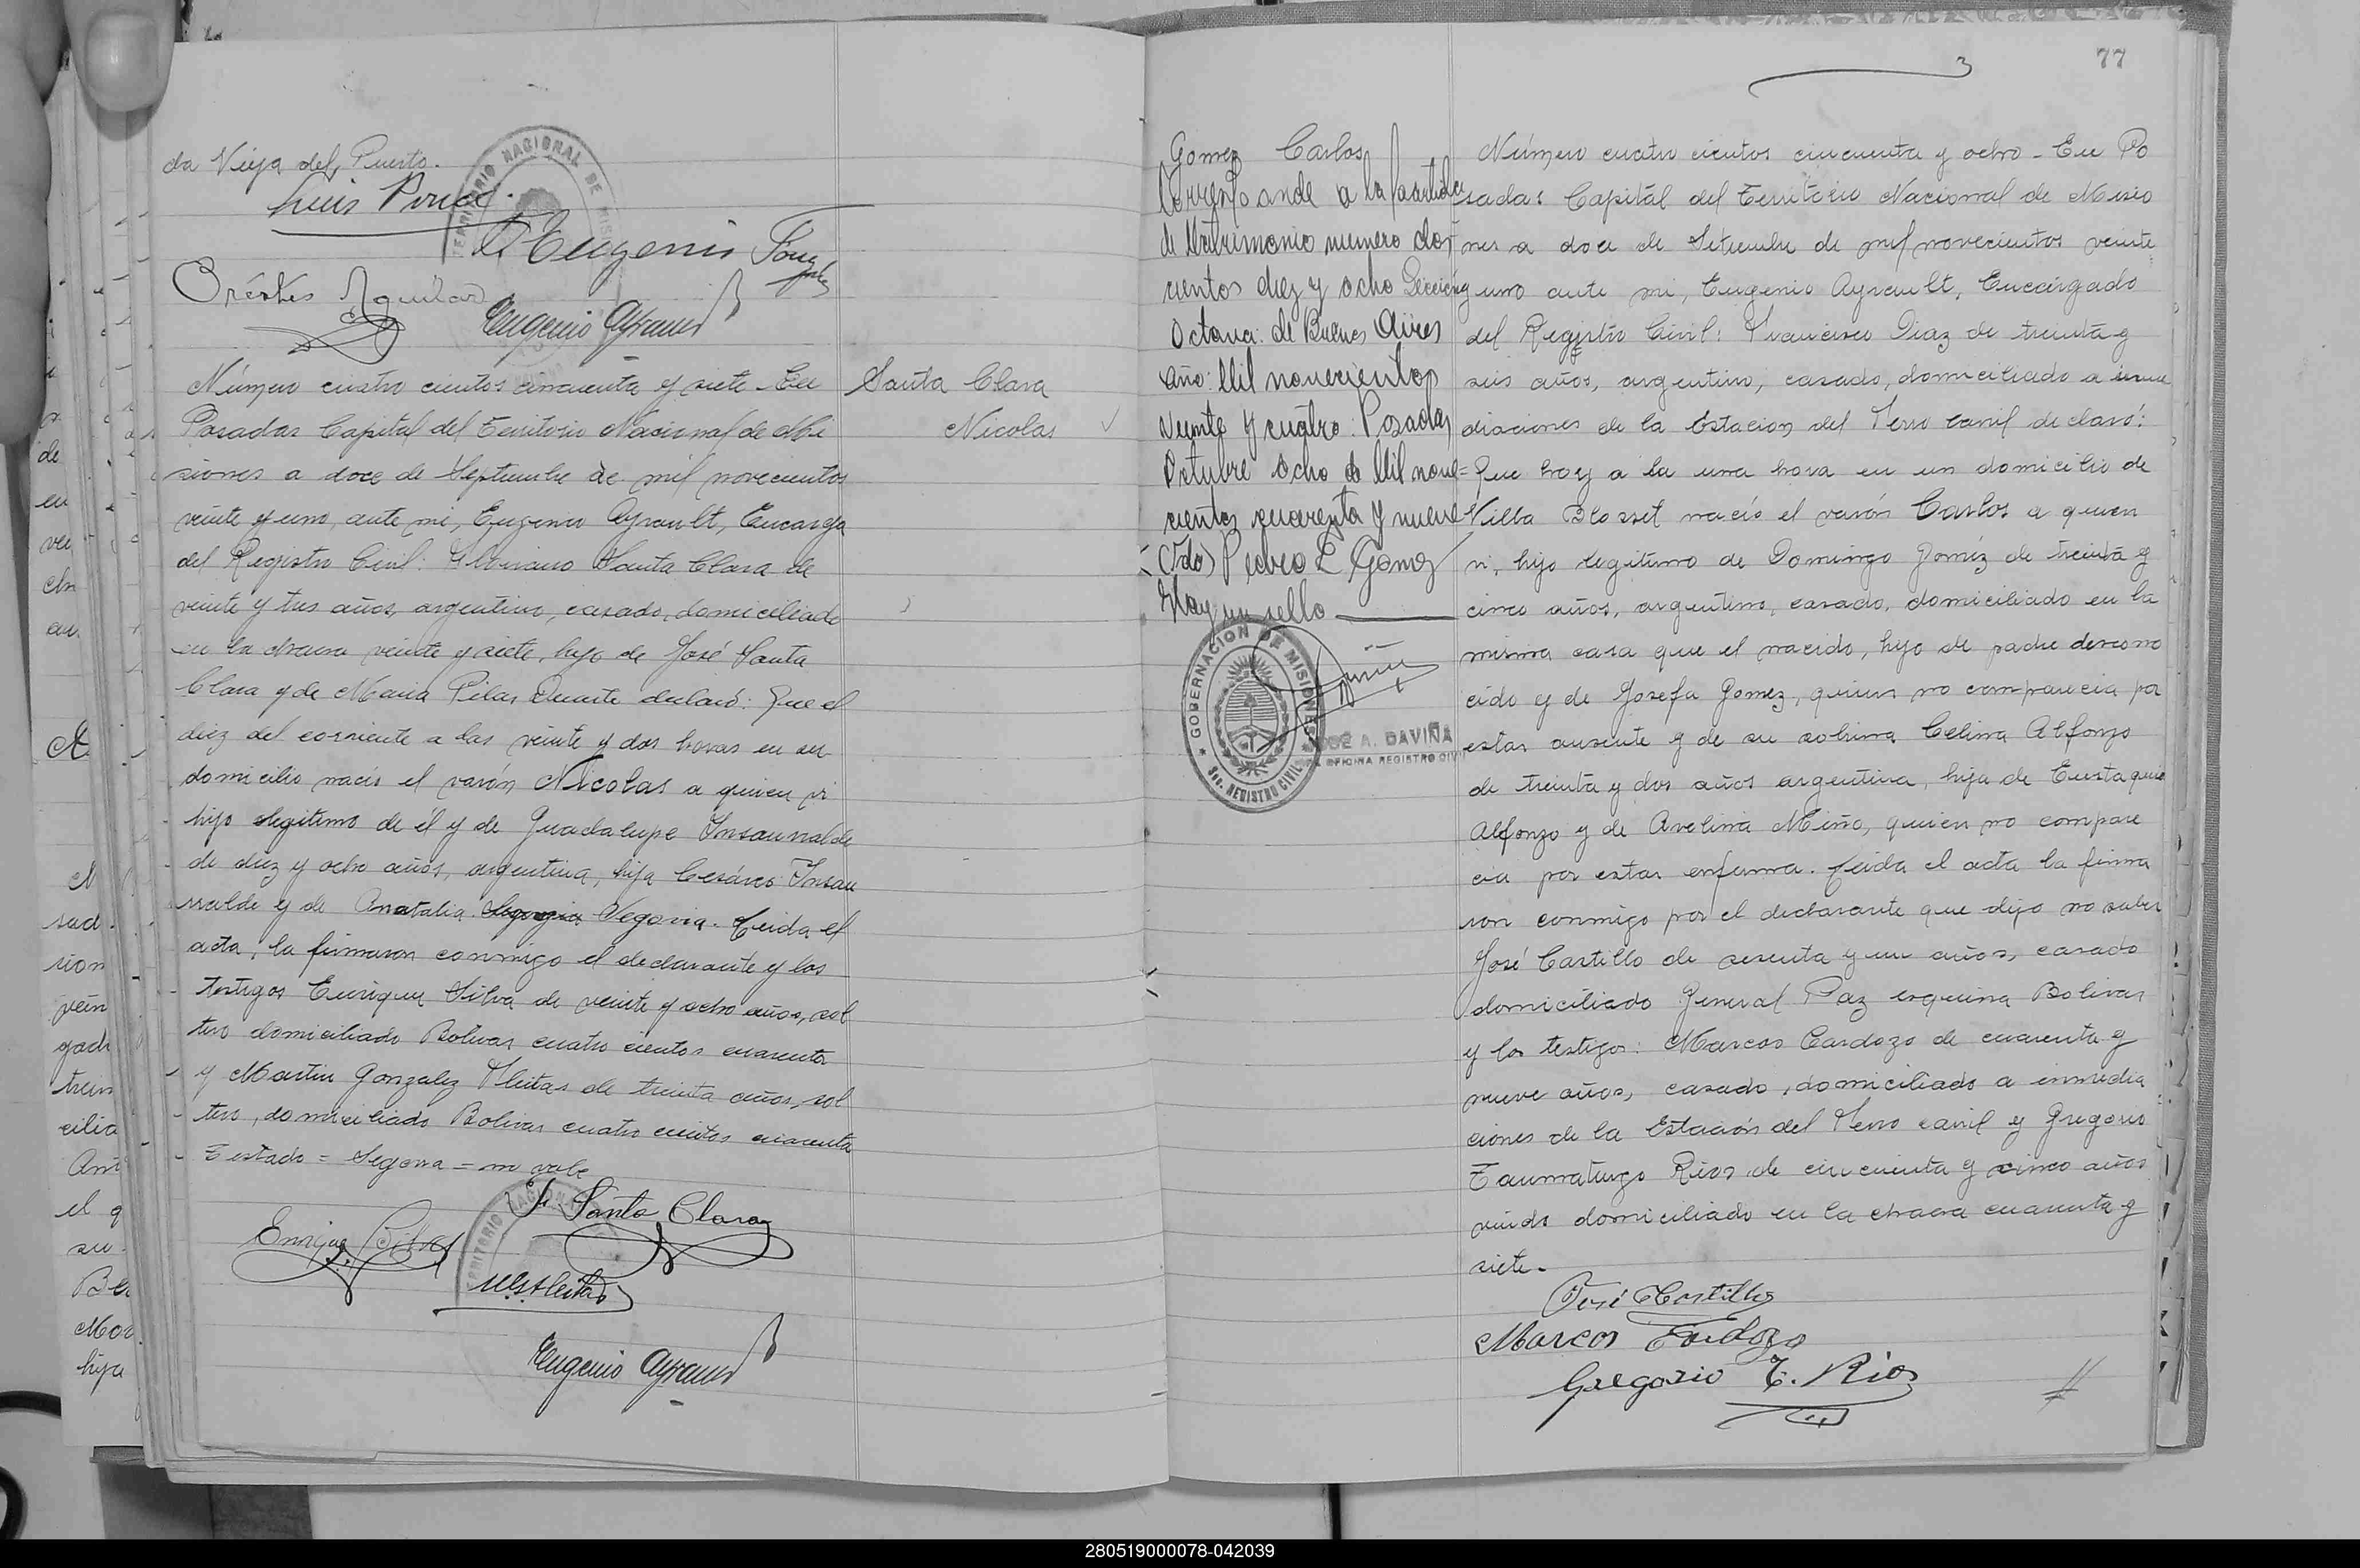 da Vieja del Puerto.
Luis Ponce.
Eugenio
Orestes Aguilar
Eugenio Ayrault
Número cuatro cientos cincuenta y siete - En
Posadas Capital del Territorio Nacional de Mi
siones a doce de Septiembre de mil novecientos
veinte y uno, ante mi, Eugenio Ayrault, Encarga
del Registro Civil: Silvinano Santa Clara de
veinte y tres años, argentino, casado, domiciliado
en la chacra veinte y siete, hijo de José Santa
Clara y de Maria Pilar Duarte declaró: Que el
diez del corriente a las veinte y dos horas en su
domicilio nació el varón Nicolas a quien vi
hijo legitimo de él y de Guadalupe Insaurralde
de diez y ocho años, argentina, hija Cesáreo Insau
rralde y de Anatalia Segovia. Leida el
acta, la firmaron conmigo el declarante y los
testigos Enrique Silva de veinte y ocho años, sol
tero domiciliado Bolivar cuatro cientos cuarenta
y Martin Gonzalez Fleitas de treinta años, sol
tero, domiciliado Bolivar cuatro cientos cuarenta
Testado = Segovia = no vale
S. Santa Clara
Enrique Silva
M. G. Fleitas
Eugenio Ayrault
Santa Clara
Nicolas
77
3
Gomez Carlos
Corresponde a la partida
de Matrimonio numero dos
cientos diez y ocho Sección
Octava: de Buenos Aires
Año: Mil novecientos
veinte y cuatro. Posadas
Octubre ocho de Mil nove=
cientos cuarenta y nueve
(Fdo) Pedro L Gomez
Hay un sello
GOBERNACION DE MISIONES
Sec. REGISTRO CIVIL
JOSE A. DAVIÑA
OFICINA REGISTRO CIVIL
Número cuatro cientos cincuenta y ocho - En Po
sadas Capital del Territorio Nacional de Misio
nes a doce de Setiembre de mil novecientos veinte
y uno ante mi, Eugenio Ayrault, Encargado
del Registro Civil: Francisco Diaz de treinta y
seis años, argentino, casado, domiciliado a inme
diaciones de la Estacion del Ferro carril declaró:
Que hoy a la una hora en un domicilio de
Villa Blosset nació el varón Carlos a quien
vi, hijo legitimo de Domingo Gomez de treinta y
cinco años, argentino, casado, domiciliado en la
misma casa que el nacido, hijo de padre descono
cido y de Josefa Gomez, quien no comparecia por
estar ausente y de su sobrina Celina Alfonzo
de treinta y dos años argentina, hija de Eustaquio
Alfonzo y de Avelina Miño, quien no compare
cia por estar enferma. Leida el acta la firma
ron conmigo por el declarante que dijo no saber
José Castillo de sesenta y un años, casado
domiciliado General Paz esquina Bolivar
y los testigos: Marcos Cardozo de cuarenta y
nueve años, casado, domiciliado a inmedia
ciones de la Estación del Ferro carril y Gregorio
Taumaturgo Rios de cincuenta y cinco años
viudo domiciliado en la chacra cuarenta y
siete.
José Castillo
Marcos Cardozo
Gregorio T. Rios
280519000078-042039